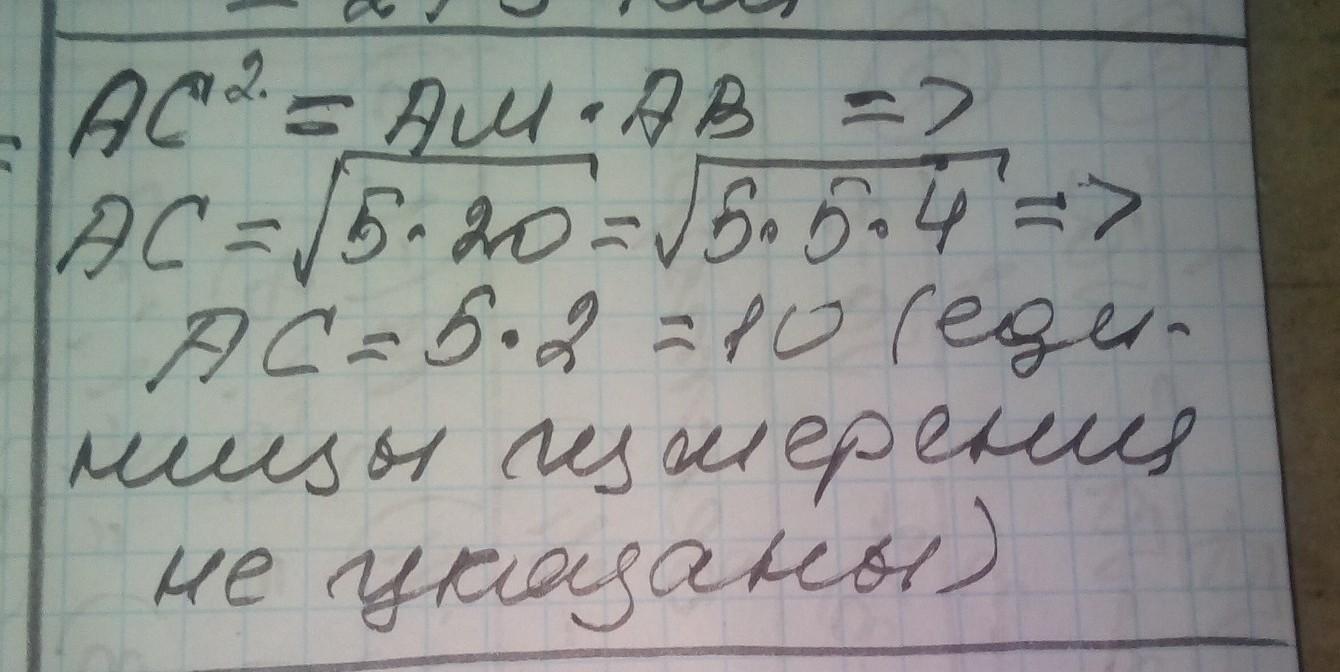 AC² = AM · AB =>
AC = √5·20 = √5·5·4 =>
AC = 5·2 = 10 (еди-
ницы измерения
не указаны)